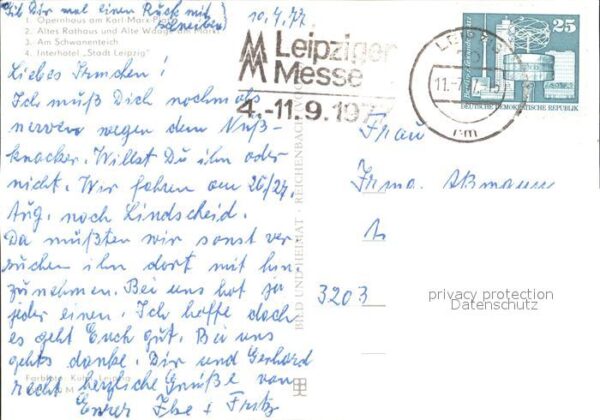 Gib Dir mal einen Ruck mit
schreiben)
10.9.77.
1. Opernhaus am Karl-Marx-Platz
2. Altes Rathaus und Alte Waage am Markt
3. Am Schwanenteich
4. Interhotel „Stadt Leipzig"
Liebes Irmchen!
Ich muß Dich nochmals
nerven wegen dem Nuß-
knacker. Willst Du ihn oder
nicht. Wir fahren am 26/27.
Aug. nach Lindscheid.
Da müßten wir sonst ver-
suchen ihn dort mit hin
zunehmen. Bei uns hat ja
jeder einen. Ich hoffe doch
es geht Euch gut. Bei uns
gehts danke. Dir und Gerhard
recht herzliche Grüße von
Eurer Ilse + Fritz
BILD UND HEIMAT · REICHENBACH
Leipziger
Messe
4.-11.9.197
LEIPZIG
11.-7
25
DEUTSCHE DEMOKRATISCHE REPUBLIK
Frau
Irma Aßmann
3203
privacy protection
Datenschutz